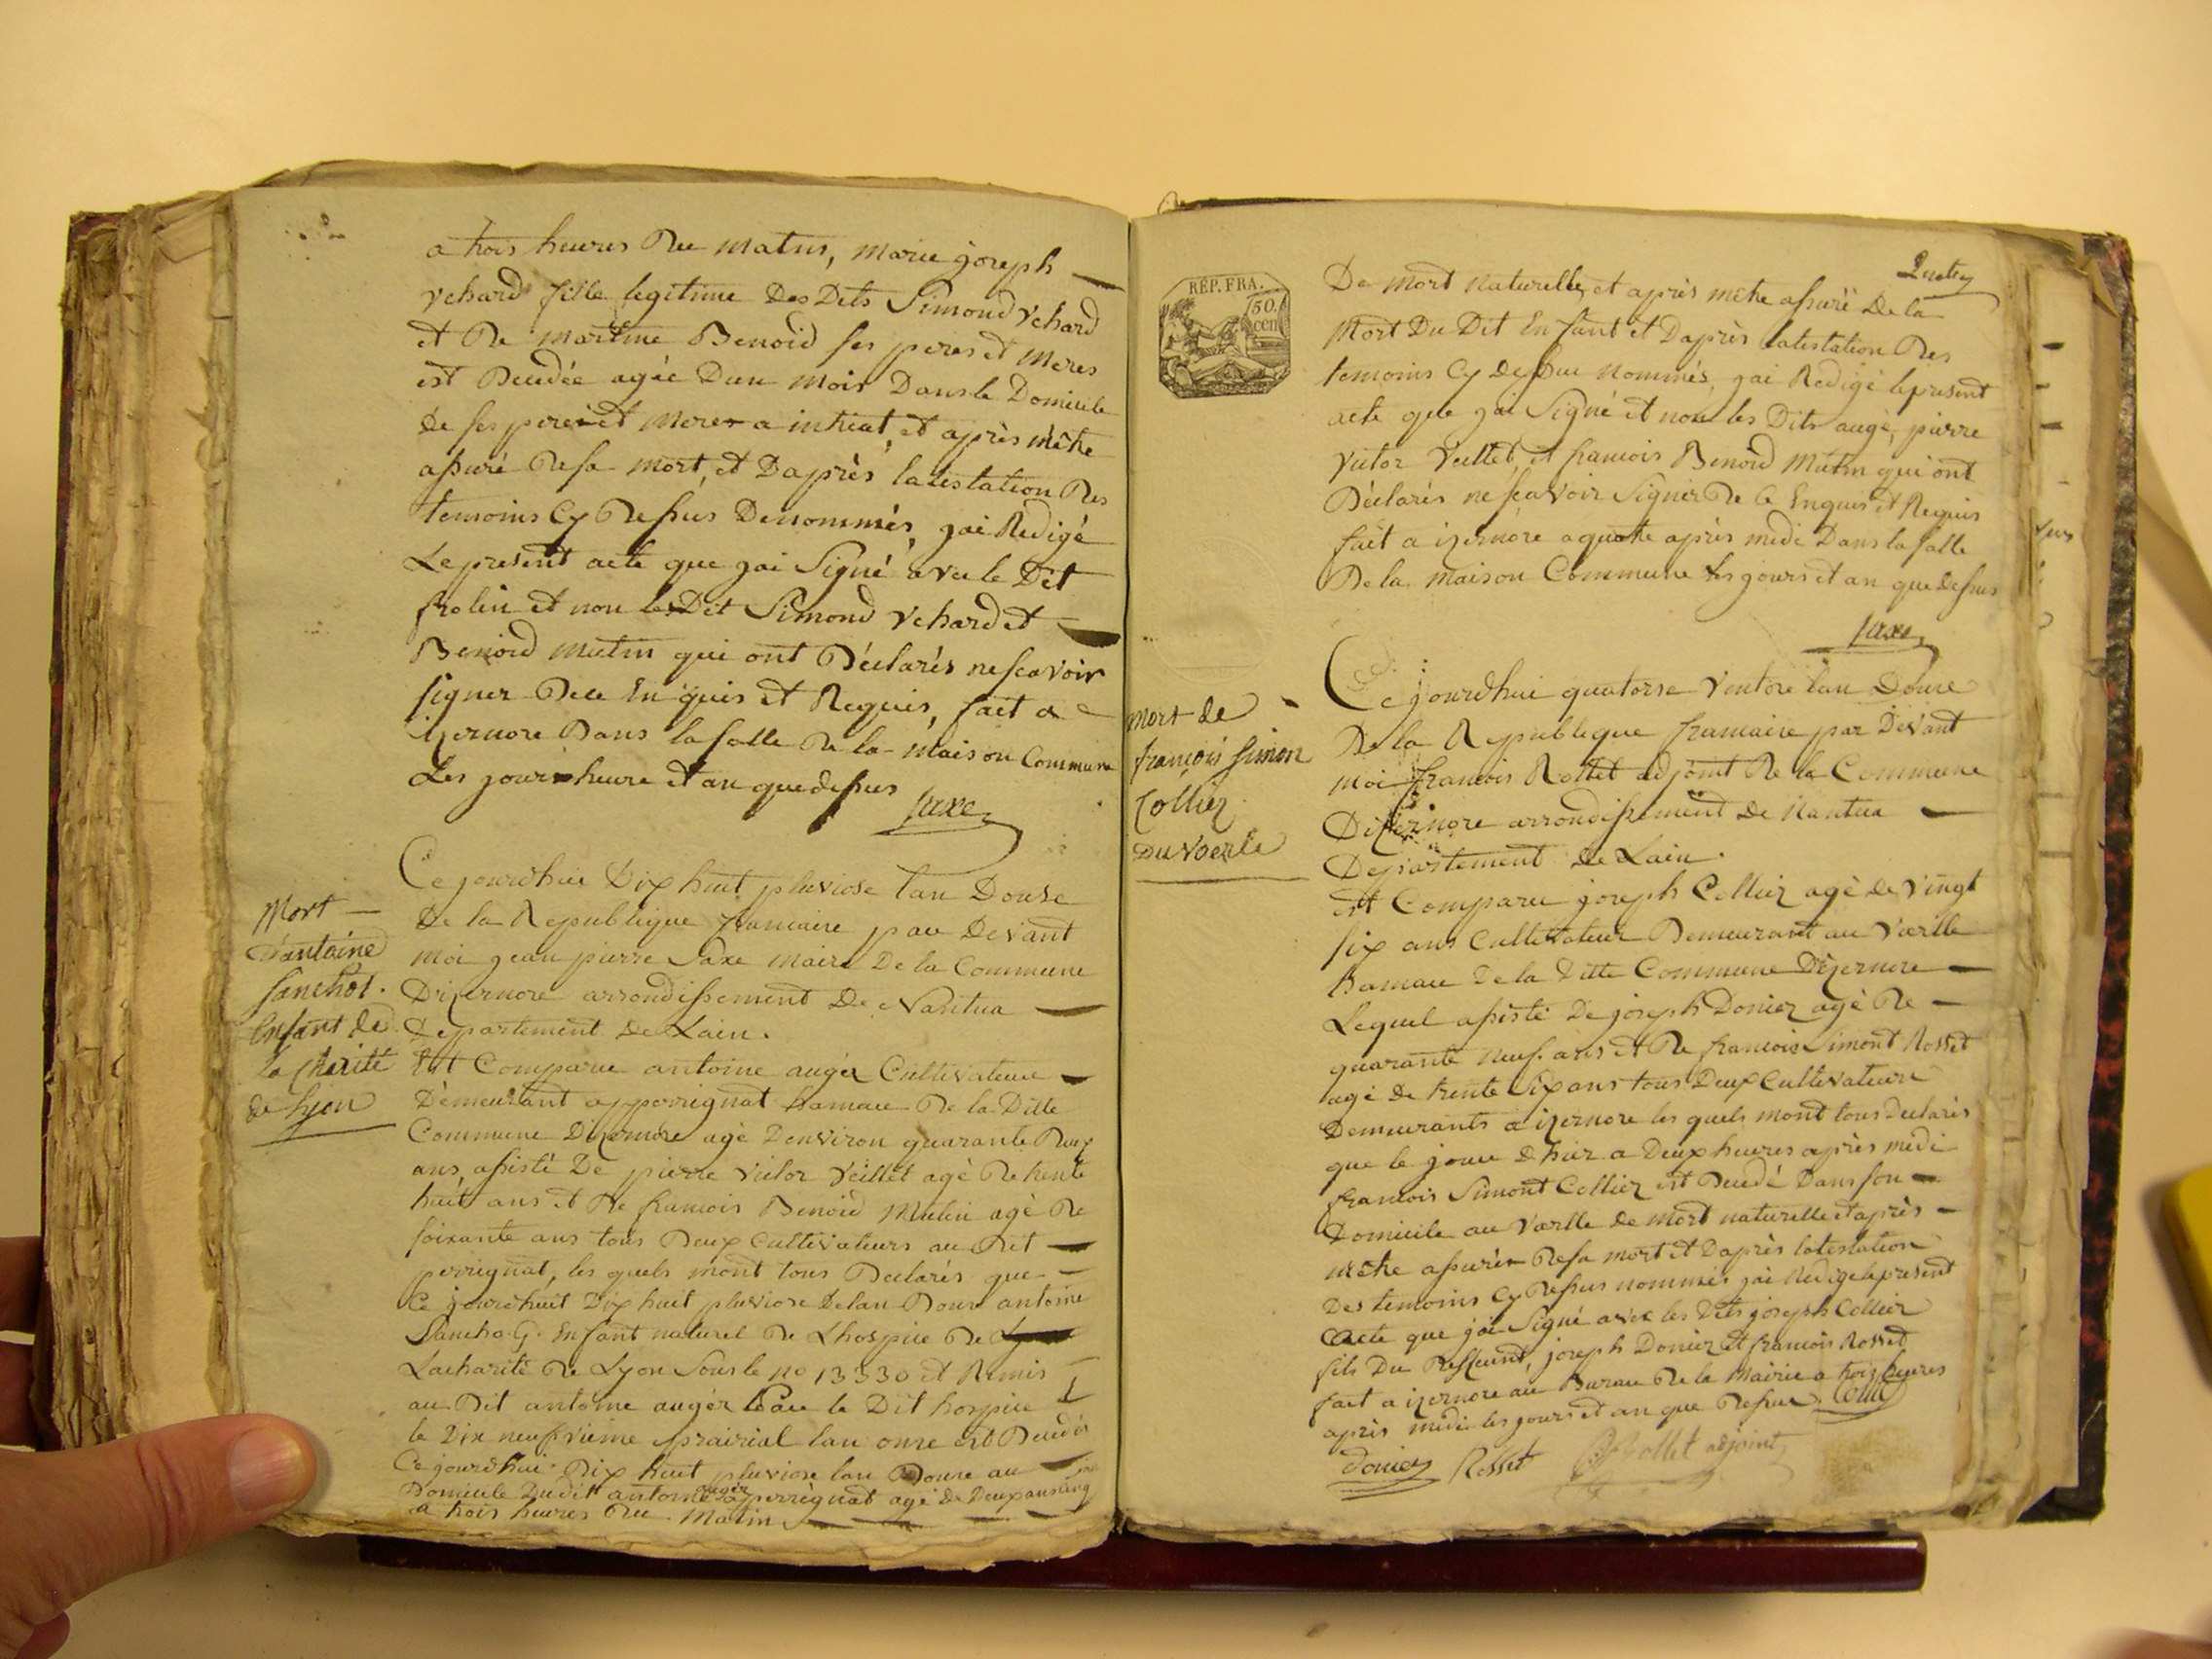 a trois heures du matin, marie joseph
vchard fille legitime des Dits Simond vchard
et de martine Benoid ses peres et meres
est Decedée agée Dun mois Dans le Domicile
de ses peres et meres a intriat, et après mêtre
assuré de sa mort, et Daprès latestation des
temoins Cy dessus Denommés, jai Redigé
Le present acte que jai Signé avec le Dit
frolin et non les Dit Simond vchard et
Benoid mutin qui ont Déclarés ne scavoir
signer de ce Enquis et Requis, fait a
izernore Dans la salle de la maison Commune
Les jours heure et an que dessus
Saxe
Mort
d'antoine
Sanchot.
Enfant de
la charité
de Lyon
Ce jourdhui Dix huit pluviose lan Douse
De la Republique francaise par Devant
moi jean pierre Saxe maire De la Commune
Dizernore arrondissement De Nantua
Departement de Lain.
Est Comparu antoine augér Cultivateur
Demeurant a perrignat hamau de la Ditte
Commune Dizernore agé Denviron quarante deux
ans, assisté De pierre victor veillet agé de trente
huit ans et de francois Benoid Mutin agé de
soixante ans tous Deux Cultivateurs au dit
perrignat, les quels mont tous Declarés que
Ce jourdhuit Dix huit pluviose De lan Douse antoine
Sancho. G. Enfant naturel de Lhospice de
Lacharité de Lyon Sous le no 13330 et Remis
au Dit antoine augér Par le Dit hospice
le Dix neufvieme prairial lan onse est Decedé
Ce jourdhui Dix huit pluviose lan Douse au
Domicile Dudit antoine augér a perrignat agé de Deux ans
a trois heures du Matin
RÉP. FRA.
50.
cen
De mort naturelle, et après mêtre assuré De la
Mort Du Dit Enfant et Daprès latestation des
temoins Cy dessus nommés, jai Redigé le present
acte que jai Signé et non les Dits augé, pierre
Victor Veillet, et francois Benoid Mutin qui ont
Déclarés ne scavoir Signer de ce Enquis et Requis
fait a izernore a quatre après midi Dans la salle
De la maison Commune les jours et an que dessus
Saxe
mort de
françois Simon
Collier
du voerle
Ce jourdhui quatorse Ventose lan Douse
De la Republique francaise par Devant
moi francois Rollet adjoint de la Commune
Dizernore arrondissement de Nantua
Departement de Lain.
est Comparu joseph Collier agé de vingt
six ans Cultivateur Demeurant au Voerlle
hamau de la ditte Commune Dizernore
Lequel assisté De joseph Donier agé de
quarante neuf ans et de francois Simont Rosset
agé de trente Six ans tous Deux Cultivateurs
Demeurants a izernore les quels mont tous declarés
que le jour d hier a Deux heures après midi
francois Simont Collier est Decedé Dans son
Domicile au Voerlle de mort naturelle et après
mêtre assurér de sa mort et Daprès latestation
Des temoins Cy dessus nommés jai Redigé le present
acte que jai Signé avec les Dits joseph Collier
fils Du deffeunt, joseph Donier et francois Rosset
fait a izernore au Bureau de la Mairie a trois heures
après midi les jours et an que dessus
Donier Rosset Rollet adjoint